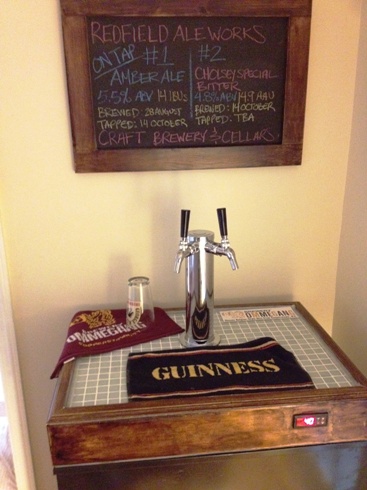 REDFIELD ALEWORKS
ON TAP #1
AMBER ALE
5.5% ABV 14 IBUs
BREWED: 28 AUGUST
TAPPED: 14 OCTOBER
#2
CHOLSEY SPECIAL
BITTER
4.8% ABV
BREWED: 14 OCTOBER
TAPPED: TBA
CRAFT BREWERY & CELLARS
GUINNESS